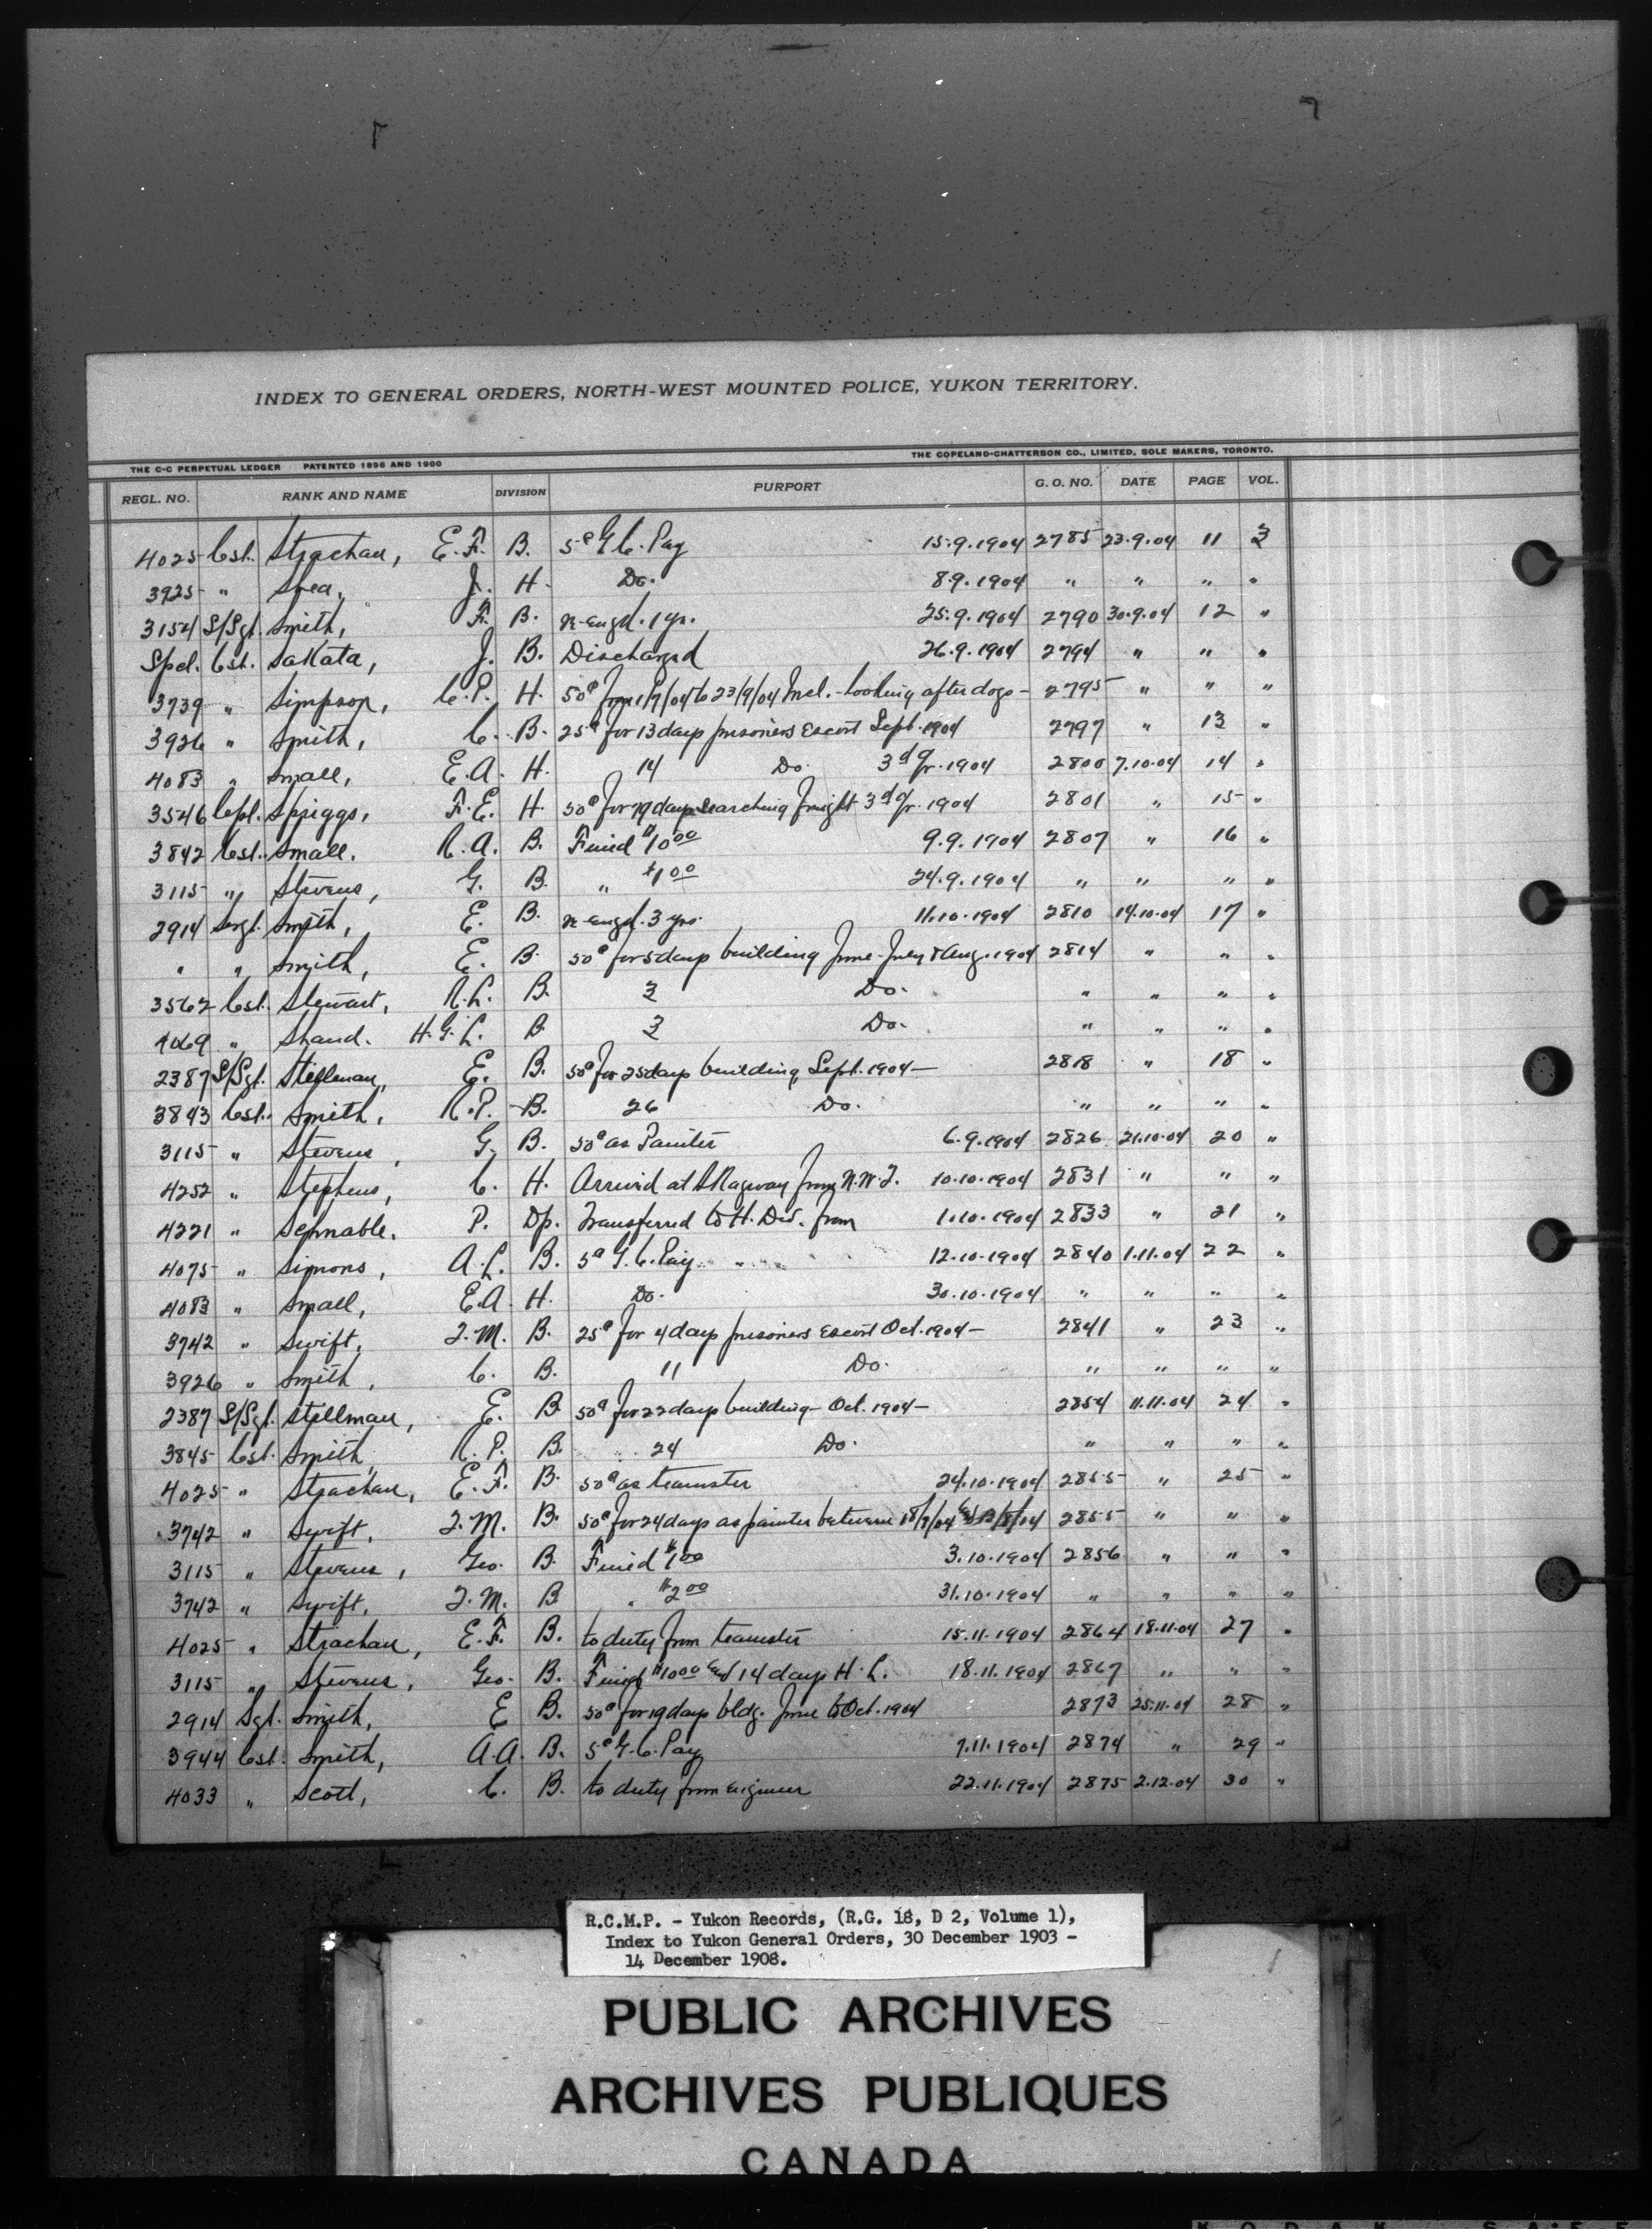 INDEX TO GENERAL ORDERS, NORTH-WEST MOUNTED POLICE, YUKON TERRITORY.
THE C-C PERPETUAL LEDGER PATENTED 1896 AND 1900 THE COPELAND-CHATTERSON CO., LIMITED, SOLE MAKERS, TORONTO.
REGL. NO. RANK AND NAME DIVISION PURPORT G. O. NO. DATE PAGE VOL.
4025 Cst. Strachan, E. F. B. 5¢ G.C. Pay 15.9.1904 2785 23.9.04 11 3
3925 " Shea, J. H. Do. 8.9.1904 " " " "
3154 S/Sgt. Smith, F. B. re-engd. 1 yr. 25.9.1904 2790 30.9.04 12 "
Spcl. Cst. Sakata, J. B. Discharged 26.9.1904 2794 " " "
3739 " Simpson, C.P. H. 50¢ from 1/9/04 to 23/9/04 Incl. - looking after dogs - 2795 " " "
3926 " Smith, C. B. 25¢ for 13 days prisoners escort Sept. 1904 2797 " 13 "
4083 " Small, E.A. H. 14 Do. 3d qr. 1904 2800 7.10.04 14 "
3546 Cpl. Spriggs, F.E. H. 50¢ for 79 days searching freight 3d qr. 1904 2801 " 15 "
3842 Cst. Small. R.A. B. Fined $10.00 9.9.1904 2807 " 16 "
3115 " Stevens, G. B. " $1.00 24.9.1904 " " " "
2914 Sergt. Smith, E. B. re-engd. 3 yrs. 11.10.1904 2810 14.10.04 17 "
" " Smith, E. B. 50¢ for 5 days building June-July & Aug. 1904 2814 " " "
3562 Cst. Stewart, R.L. B. 3 Do. " " " "
4069 " Shand. H.G.L. B. 3 Do. " " " "
2387 S/Sgt. Stillman, E. B. 50¢ for 25 days building Sept. 1904 — 2818 " 18 "
3843 Cst. Smith, R.P. B. 26 Do. " " " "
3115 " Stevens, G. B. 50¢ as Painter 6.9.1904 2826 21.10.04 20 "
4252 " Stephens, C. H. Arrived at Skagway from N.W.T. 10.10.1904 2831 " " "
4221 " Sennable. P. Dp. Transferred to H. Div. from 1.10.1904 2833 " 21 "
4075 " Simons, A.L. B. 5¢ G.C. Pay 12.10.1904 2840 1.11.04 22 "
4083 " Small, E.A. H. Do. 30.10.1904 " " " "
3742 " Swift, T.M. B. 25¢ for 4 days prisoners escort Oct. 1904 — 2841 " 23 "
3926 " Smith, C. B. 11 Do. " " " "
2387 S/Sgt. Stillman, E. B. 50¢ for 22 days building - Oct. 1904 — 2854 11.11.04 24 "
3845 Cst. Smith, R.P. B. 24 Do. " " " "
4025 " Strachan, E.F. B. 50¢ as teamster 24.10.1904 2855 " 25 "
3742 " Swift, T.M. B. 50¢ for 24 days as painter between 2855 " " "
3115 " Stevens, Geo. B. Fined $1.00 3.10.1904 2856 " " "
3742 " Swift, T.M. B. " $2.00 31.10.1904 " " " "
4025 " Strachan, E.F. B. to duty from teamster 15.11.1904 2864 18.11.04 27 "
3115 " Stevens, Geo. B. Fined $10.00 and 14 days H.L. 18.11.1904 2867 " " "
2914 Sgt. Smith, E B. 50¢ for 19 days bldg. June to Oct. 1904 2873 25.11.04 28 "
3944 Cst. Smith, A.A. B. 5¢ G.C. Pay 7.11.1904 2874 " 29 "
4033 " Scott, C. B. to duty from engineer 22.11.1904 2875 2.12.04 30 "
R.C.M.P. - Yukon Records, (R.G. 18, D 2, Volume 1),
Index to Yukon General Orders, 30 December 1903 -
14 December 1908.
PUBLIC ARCHIVES
ARCHIVES PUBLIQUES
CANADA